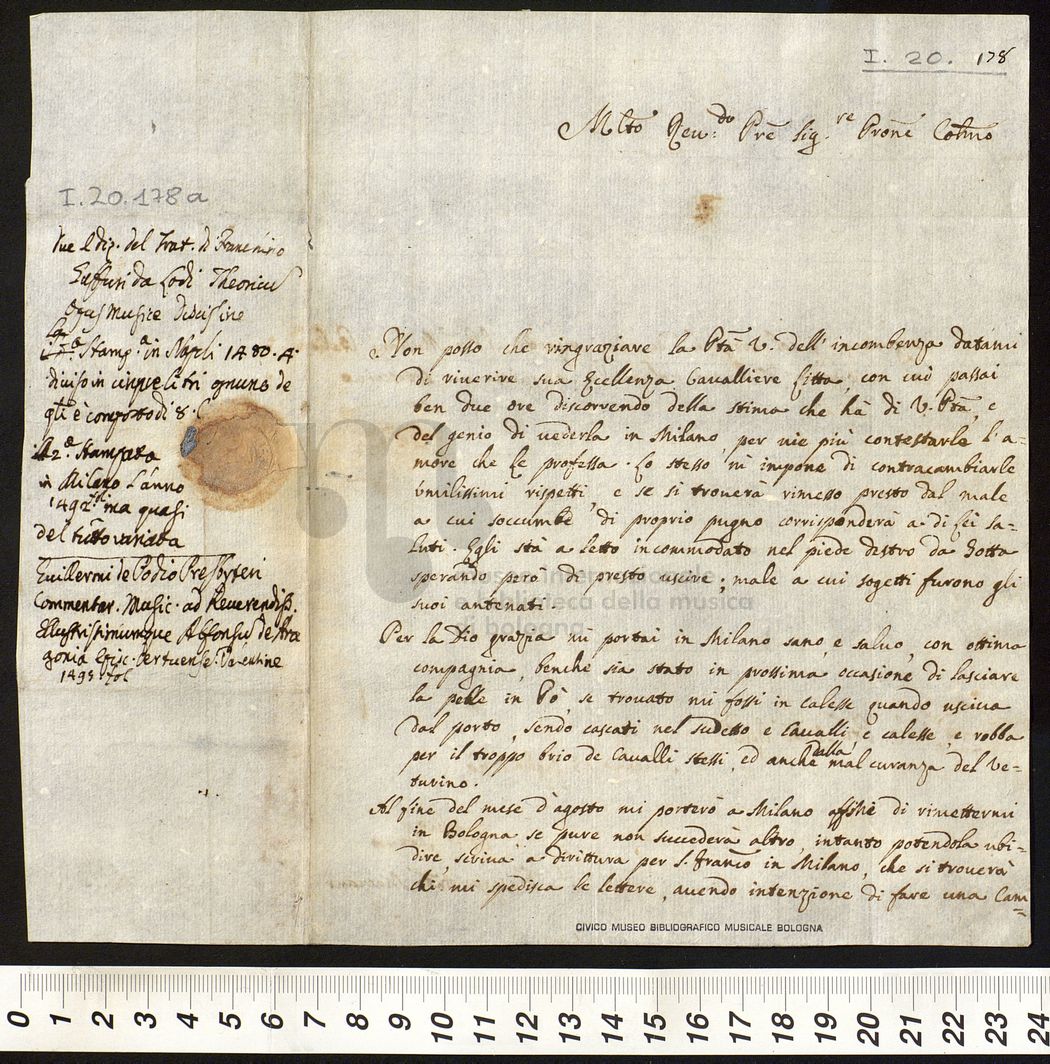 I. 20. 178
Mlto Reu:do Pre Sig.re Prone Colmo
I.20.178a
due Ediz. del Trat. di Franchino
Gaffuri da Lodi Theoricu
Opus Musice Discipline
Stamp.a in Napoli 1480. 4.
diviso in cinque libri ognuno de
qli è composto di 8. C
2.a Stampata
in Milano l'anno
1492. ma quasi
del tutto variata
Guillermi de Podio Presbyteri
Commentar. Music. ad Reverendiss.
Illustrissimumque Alfonsus de Ara
gonia Episc. Dertuense. Valentine
1495 fol
Non posso che ringraziare la Pta V. dell' incombenza datami
di riverire sua Eccellenza Cavalliere Litta, con cui passai
ben due ore discorrendo della stima che hà di V. Pta, e
del genio di vederla in Milano, per vie più contestarle l'a-
more che Le professa. Lo stesso mi impone di contracambiarle
umilissimi rispetti, e se si trouerà rimesso presto dal male
a cui soccumbe, di proprio pugno corrisponderà a di Lei sa-
luti. Egli stà a letto incommodato nel piede destro da Gotta
sperando però di presto uscire; male a cui sogetti furono gli
suoi antenati.
Per la Dio grazia mi portai in Milano sano, e saluo, con ottima
compagnia, benche sia stato in prossima occasione di lasciare
la pelle in Pò, se trouato mi fossi in calesse quando usciva
dal porto, sendo cascati nel sudetto e Cavalli, e calesse, e robba
per il troppo brio de Cavalli stessi, ed anche dalla mal curanza del Ve=
turino.
Al fine del mese d'agosto mi porterò a Milano affine di rimettermi
in Bologna se pure non succederà altro, intanto potendola ubi=
dire, scriva a dirittura per S. Franco in Milano, che si trouerà
chi mi spedisca le lettere, auendo intenzione di fare una Cam=
museo internazionale
e biblioteca della musica
di bologna
CIVICO MUSEO BIBLIOGRAFICO MUSICALE BOLOGNA
0 1 2 3 4 5 6 7 8 9 10 11 12 13 14 15 16 17 18 19 20 21 22 23 24